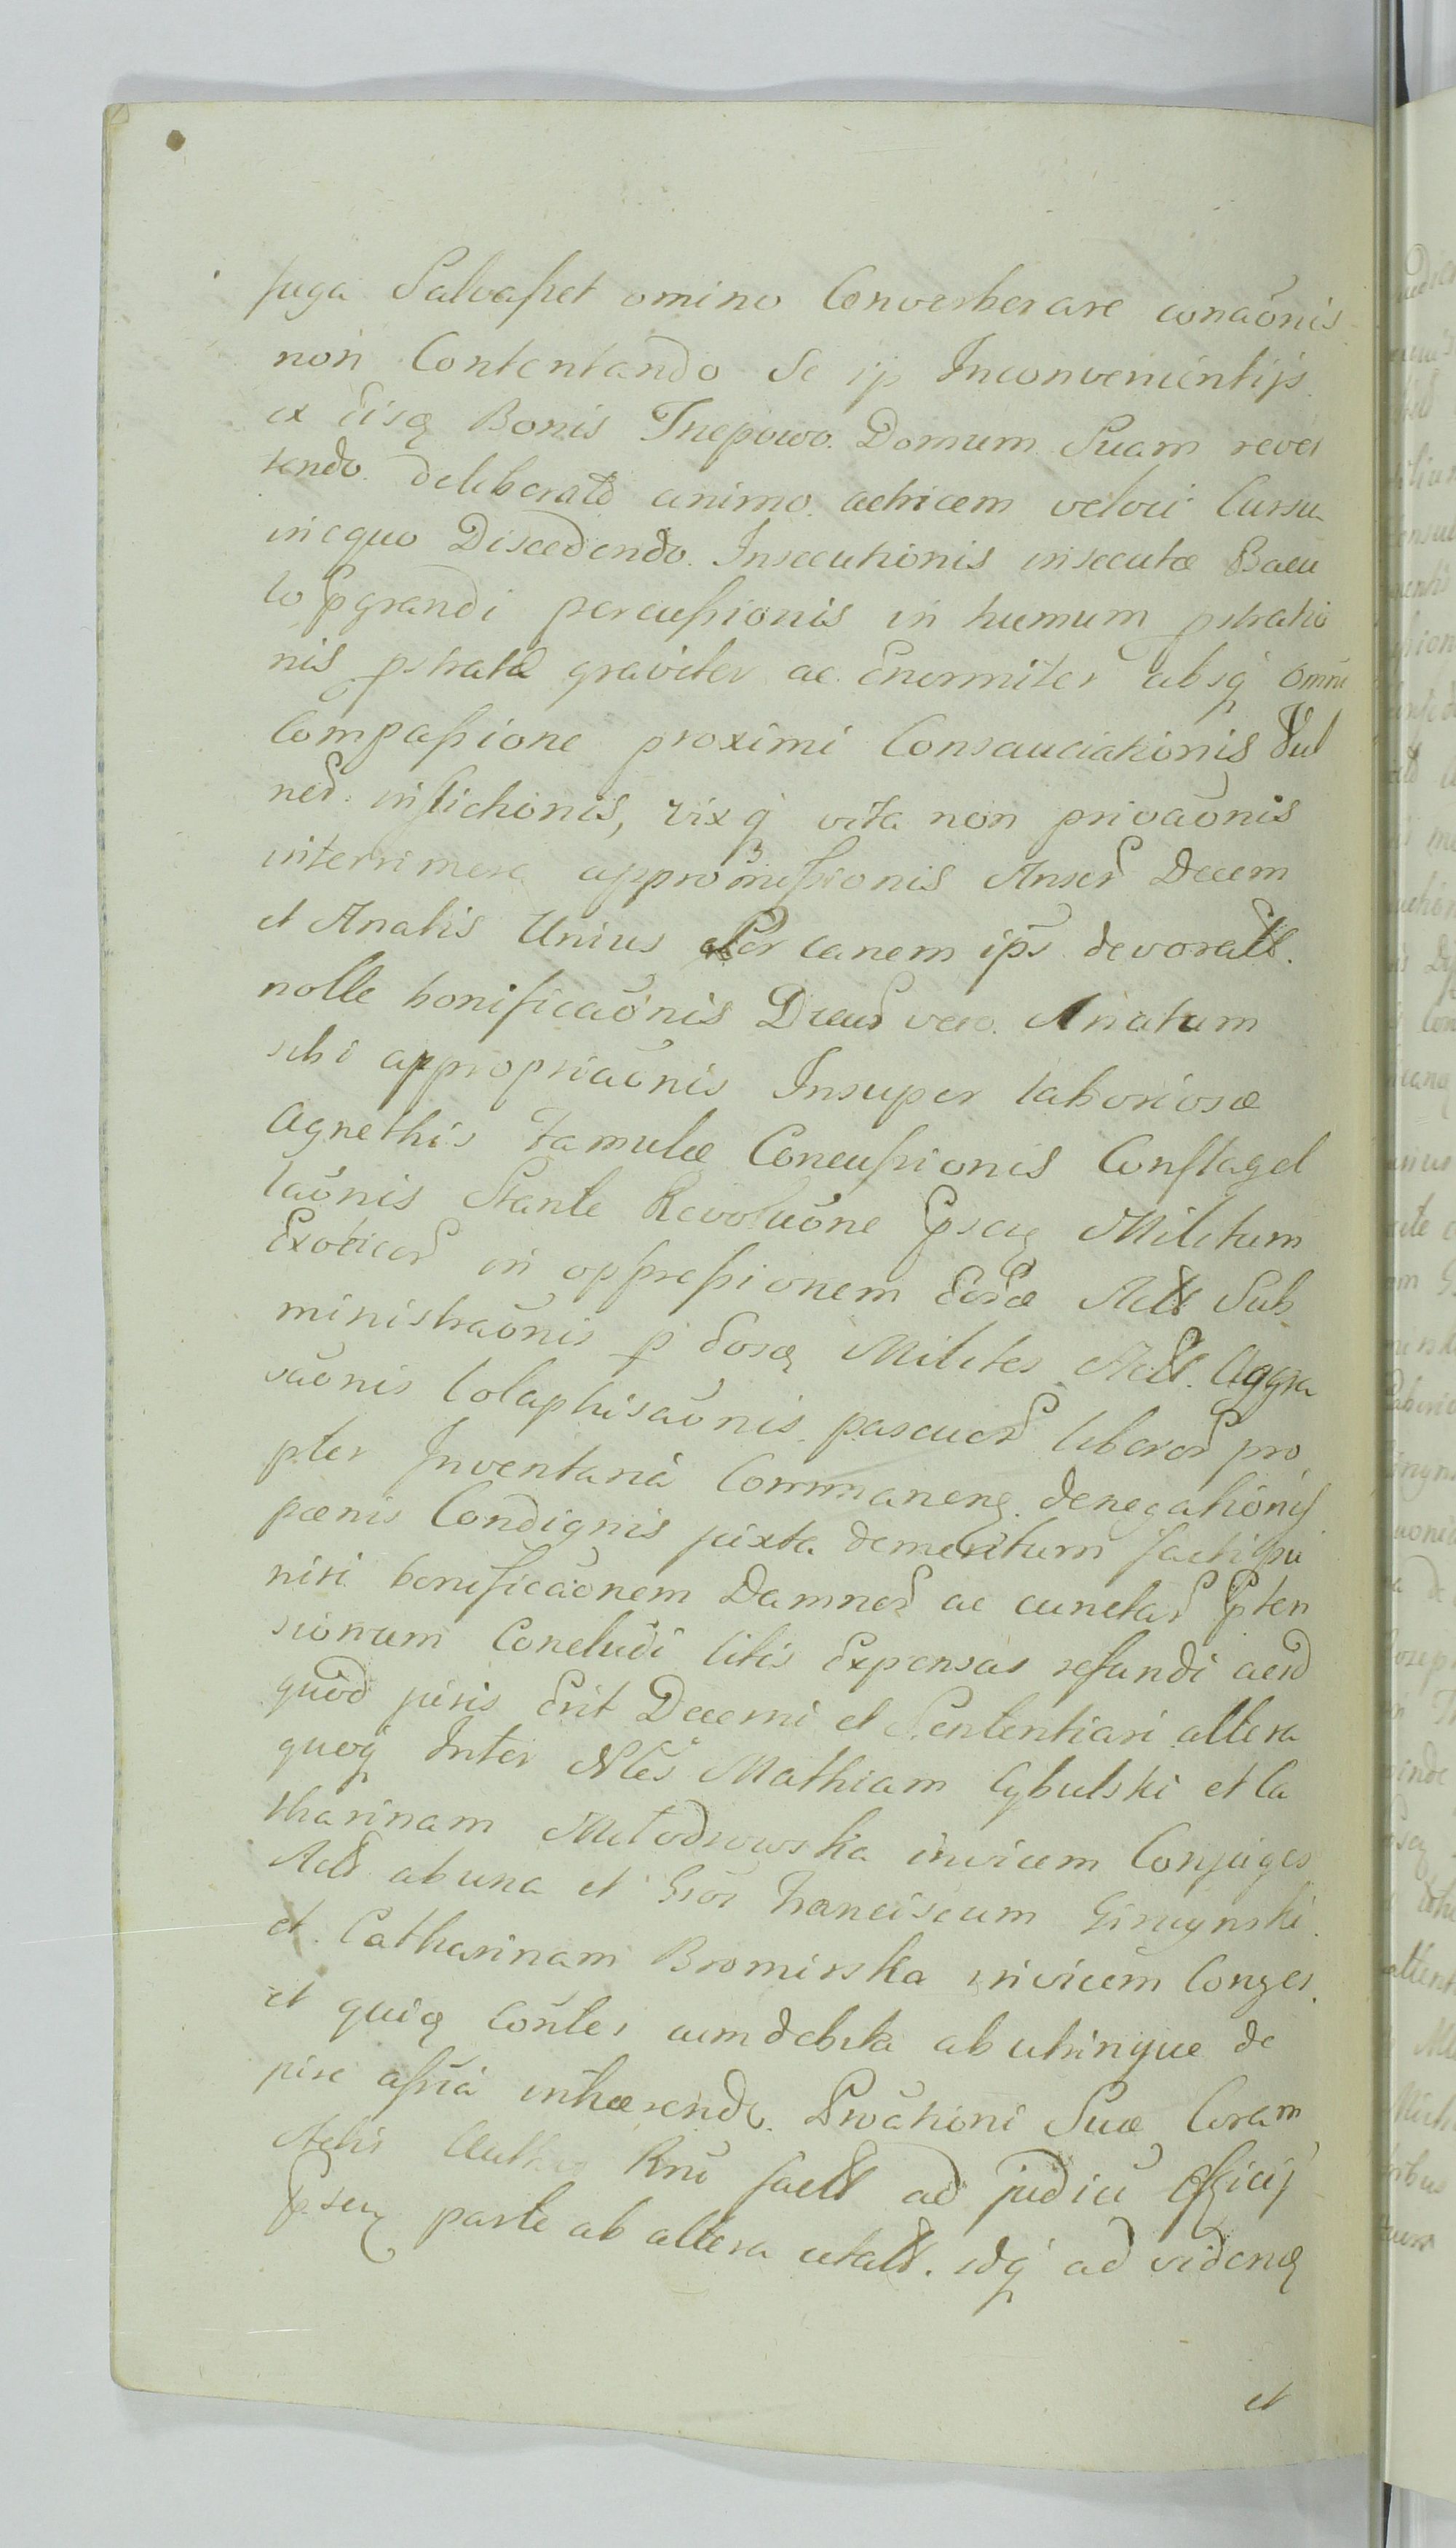 fuga Salvaſset omino Converberare conaōnis
non Contentando Se ip Inconvenientijs
ex Eisq Bonis Tnepowo Domum Suam rever
tendo deliberato animo actricem veloci Cursu
in equo Discedendo Insecutionis insecutæ Bacu
lo p̄grandi percuſsionis in humum pstratio
nis pstratæ graviter ac Enormiter absq̨ omni
Compaſsione proximi Consauciationis Vul
ner inflictionis, vixq̨ vita non privaōnis
interrimere appromiſsionis Anser Decem
et Anatis Unius Per canem ips devorat
nolle bonificaōnis Ducur vero Anatum
sibi appropriaōnis Insuper laboriosæ
Agnethis Famulæ Concuſsionis Conflagel
laōnis Stante Revoluōne Ppscq Militum
Exoticor in oppreſsionem Eorsæ Act Sub
ministraōnis p Eosq Milites Act Aggra
vaōnis Colaphisaōnis pascuor liberor pro
pter Inventaria Commanenq denegationis
pœnis Condignis juxta demeritum facti pu
niri bonificaōnem Damnor ac cunctar Ppten
sionum Concludi litis Expensas refundi aerd
quod juris Erit Decerni et Sententiari altera
quoq̨ Inter Nles Mathiam Cybulski et Ca
tharinam Młodzowska invicem Conjuges
Act ab una et Gros Franciscum Girzynski
et Catharinam Bromirska invicem Conges
et quiq Contes cum debita ab utrinque de
jure aſsña inhærendo Pwationi Suæ Coram
Actis Rnō fact ad judiciū Officij
Ppscq parte ab altera citat. idq̨ ad videnq
et